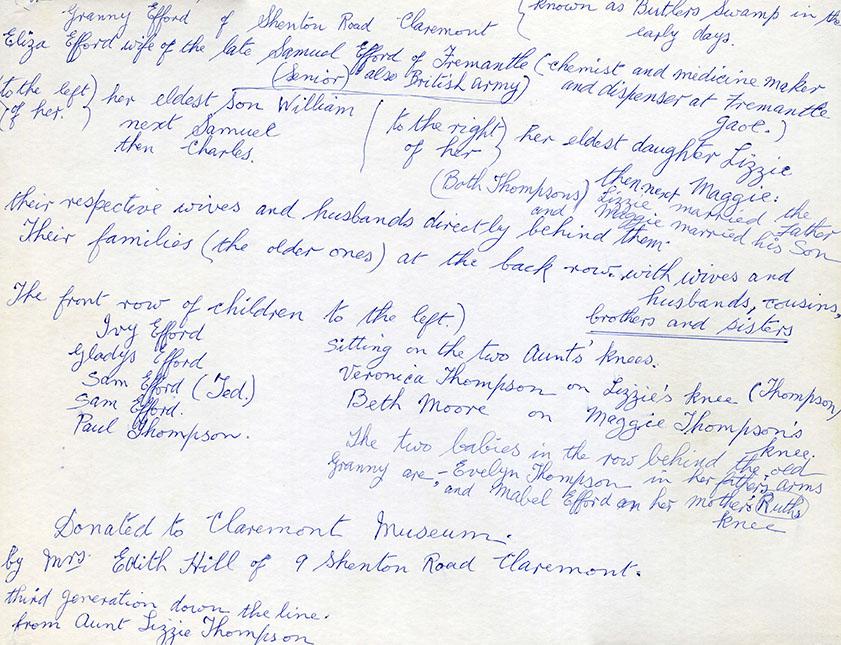 Granny Efford of Shenton Road Claremont { known as Butlers Swamp in the early days.
Eliza Efford wife of the late Samuel Efford of Fremantle (chemist and medicine maker and dispenser at Fremantle gaol.)
(Senior) also British army)
(to the left of her.) her eldest son William
next Samuel
then Charles.
(to the right of her) her eldest daughter Lizzie
then next Maggie:
(Both Thompsons) Lizzie married the Father
and Maggie married his Son
their respective wives and husbands directly behind them.
Their families (the older ones) at the back row. with wives and
husbands, cousins,
brothers and sisters
The front row of children to the left.)
Ivy Efford
Gladys Efford
Sam Efford (Ted.)
Sam Efford.
Paul Thompson.
Sitting on the two Aunts' knees.
Veronica Thompson on Lizzie's knee (Thompson)
Beth Moore on Maggie Thompson's
knee.
The two babies in the row behind the old
Granny are - Evelyn Thompson in her father's arms
and Mabel Efford on her mother's (Ruth's)
knee
Donated to Claremont Museum.
by Mrs. Edith Hill of 9 Shenton Road Claremont.
third generation down the line.
from Aunt Lizzie Thompson